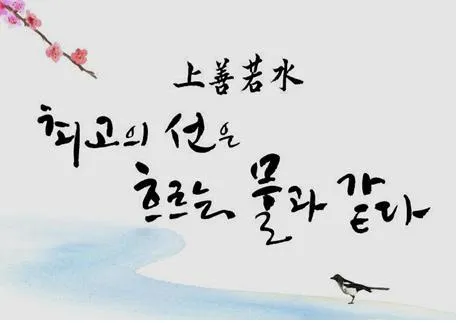 上善若水
최고의 선은
흐르는 물과 같다